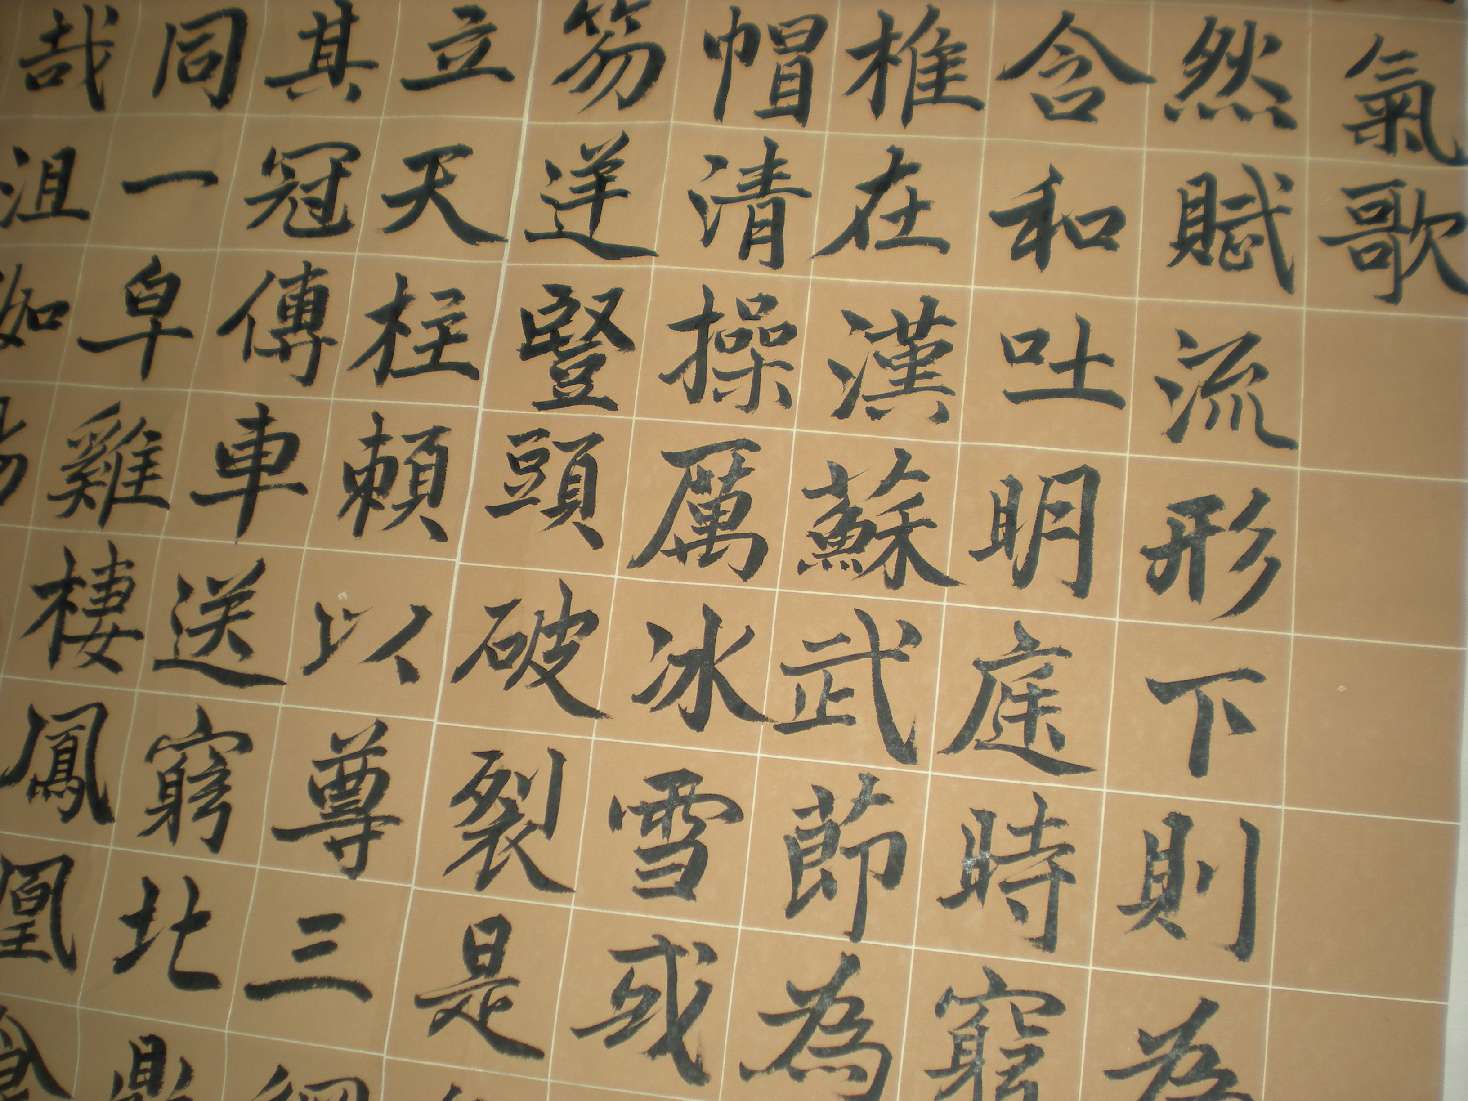 氣歌
然賦流形下則為
含和吐明庭時窮
椎在漢蘇武節為
帽清操厲冰雪或
笏逆豎頭破裂是
立天柱賴以尊三
其冠傳車送窮北
同一皁雞棲鳳
哉沮洳
凰